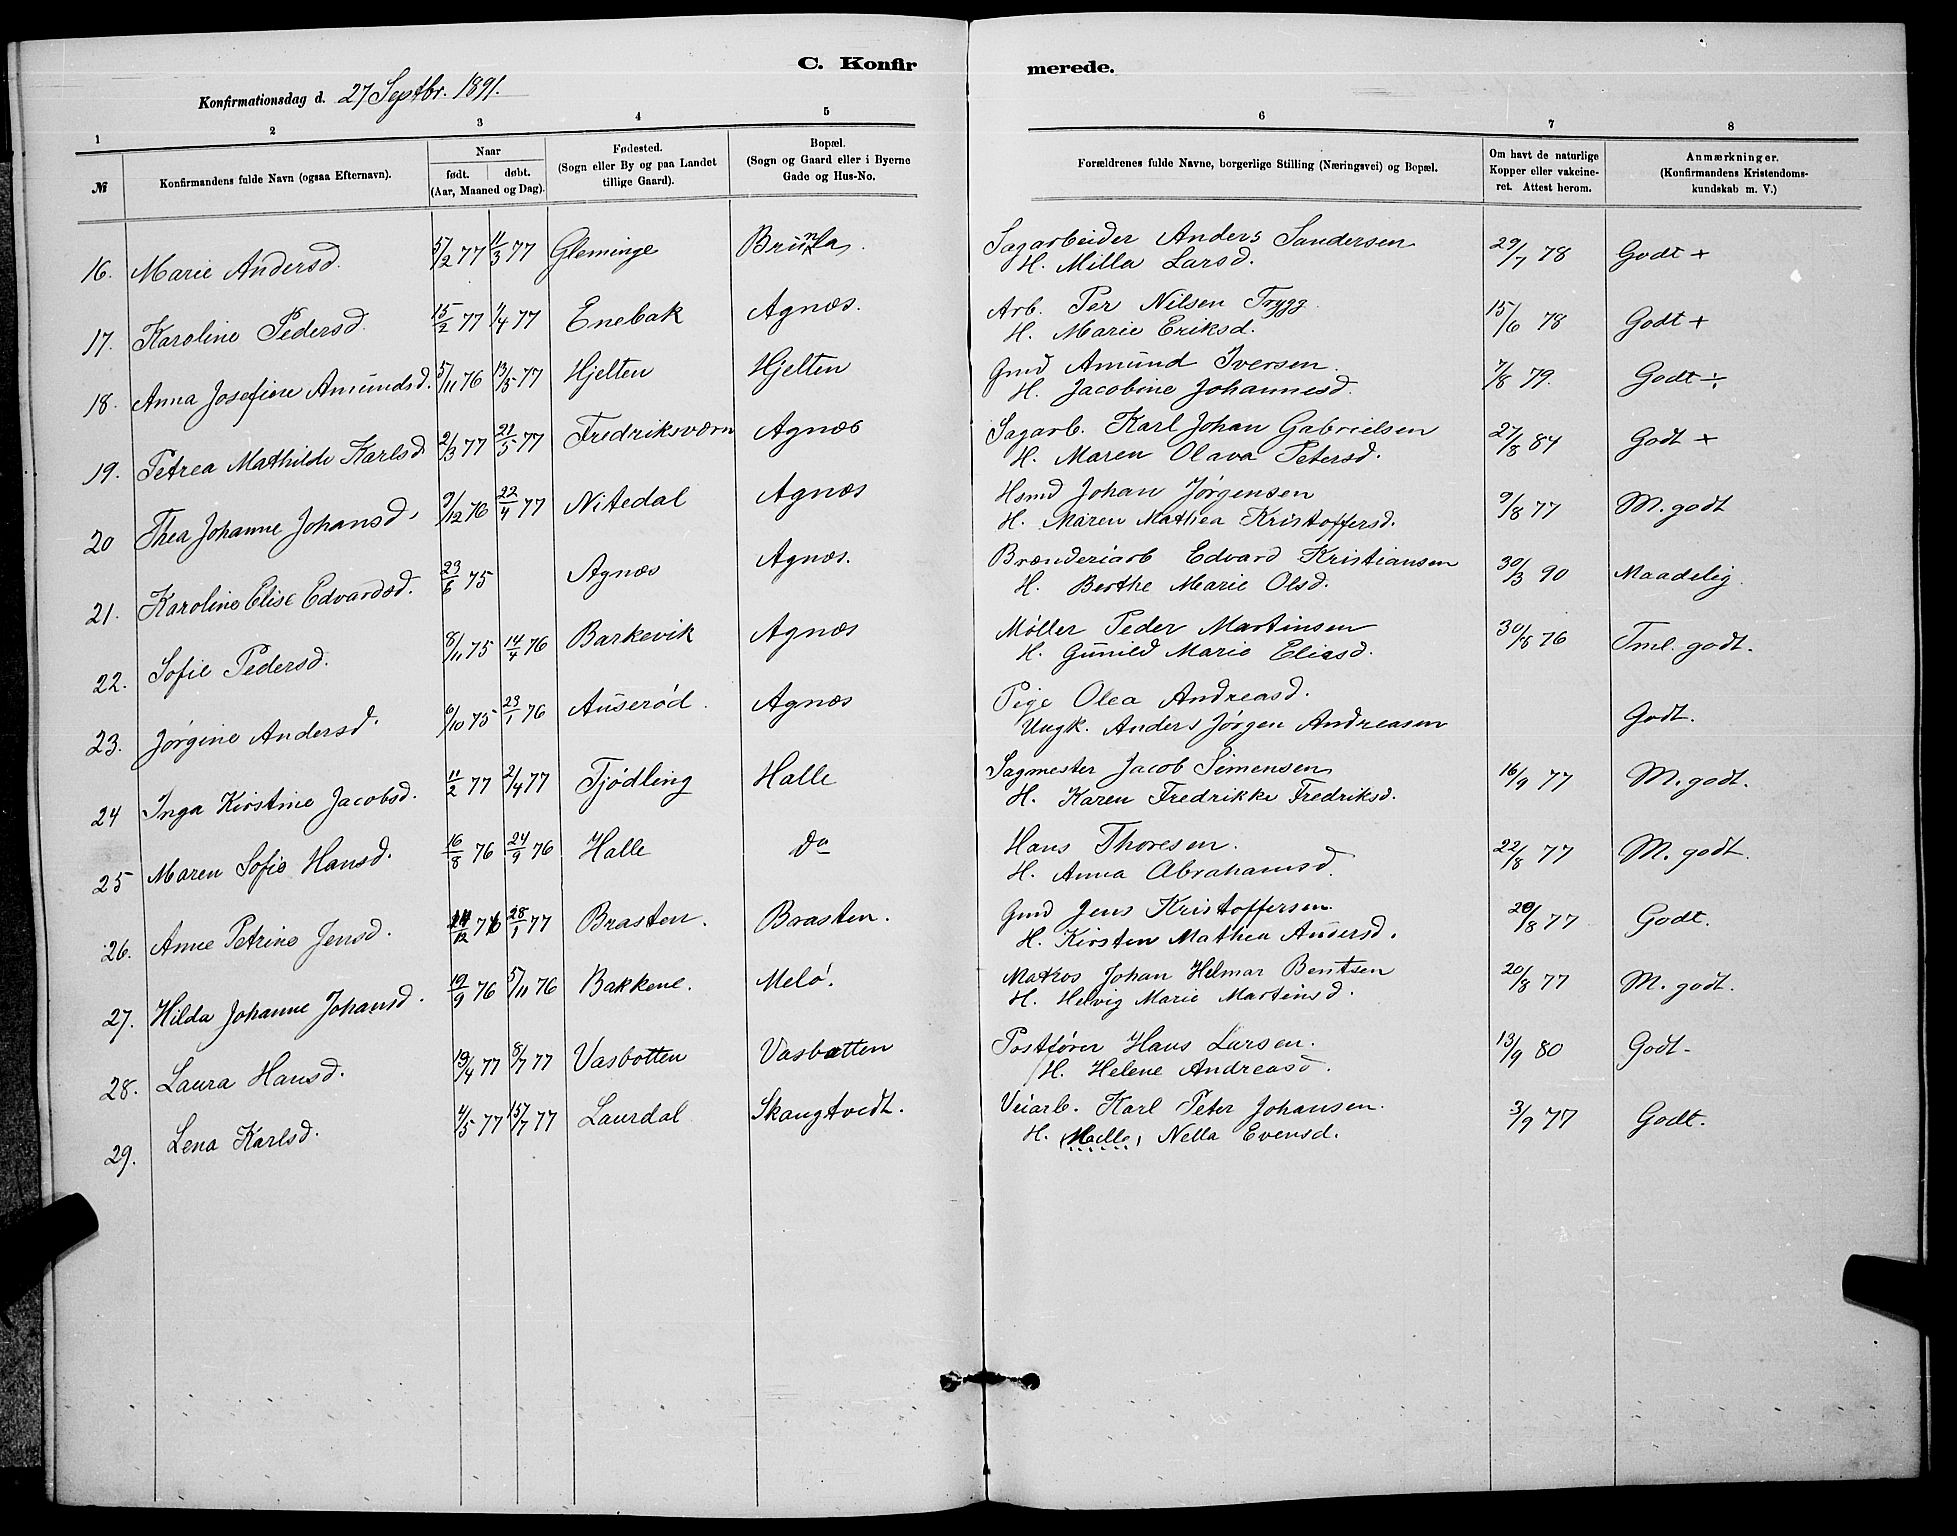 C. Konfirmerede.
Konfirmationsdag d. 27 Septbr. 1891.
1 2 3 4 5 6 7 8
№ Konfirmandens fulde Navn (ogsaa Efternavn). Naar født. døbt. (Aar, Maaned og Dag). Fødested. (Sogn eller By og paa Landet tillige Gaard). Bopæl. (Sogn og Gaard eller i Byerne Gade og Hus-No. Forældrenes fulde Navne, borgerlige Stilling (Næringsvei) og Bopæl. Om havt de naturlige Kopper eller vakcineret. Attest herom. Anmærkninger. (Konfirmandens Kristendomskundskab m. V.)
16. Marie Andersd. 5/2 77 11/3 77 Gleminge Brunla. Sagarbeider Anders Sandersen 29/7 78 Godt +
H. Milla Larsd.
17. Karoline Pedersd. 15/2 77 1/4 77 Enebak Agnæs. Arb. Per Nilsen Trygg. 15/6 78 Godt +
H. Marie Eriksd.
18. Anna Josefine Amundsd. 5/11 76 13/5 77 Hjelten Hjelten Gmd Amund Iversen. 7/8 79. Godt ÷
H. Jacobine Johannesd.
19. Petrea Mathilde Karlsd 2/3 77 21/5 77 Fredriksværn Agnæs Sagarb. Karl Johan Gabrielsen 27/8 84 Godt +
H. Maren Olava Petersd.
20 Thea Johanne Johansd. 9/12 76 22/4 77 Nitedal Agnæs Hsmd Johan Jørgensen 9/8 77 M. godt
H. Maren Mathea Kristoffersd.
21. Karoline Elise Edvardsd. 23/6 75 Agnæs Agnæs. Brænderiarb Edvard Kristiansen 30/3 90 Maadelig.
H. Berthe Marie Olsd.
22. Sofie Pedersd. 8/11 75 14/4 76 Barkevik Agnæs Møller Peder Martinsen 30/8 76 Tml. godt.
H. Gunild Marie Eliasd.
23. Jørgine Andersd. 6/10 75 23/1 76 Auserød. Agnæs Pige Olea Andreasd. Godt.
Ungk. Anders Jørgen Andreasen
24 Inga Kirstine Jacobsd. 11/2 77 2/4 77 Tjødling Halle Sagmester Jacob Simensen 16/9 77 M. godt.
H. Karen Fredrikke Fredriksd.
25 Maren Sofie Hansd. 16/8 76 24/9 76 Halle do Hans Thoresen. 22/8 77 M. godt.
H. Anna Abrahamsd.
26. Anne Petrine Jensd. /12 76 28/1 77 Brasten. Brasten. Gmd Jens Kristoffersen. 20/8 77 Godt.
H. Kirsten Mathea Andersd.
27. Hilda Johanne Johansd. 19/9 76 5/11 76 Bakkene. Melø. Matros Johan Helmar Bentsen 20/8 77 M. godt.
H. Helvig Marie Martinsd.
28. Laura Hansd. 19/4 77 8/7 77 Vasbotten Vasbotten Postfører Hans Larsen. 13/9 80 Godt.
H. Helene Andreasd.
29. Lena Karlsd. 4/5 77 15/7 77 Laurdal Skaugtvedt. Veiarb. Karl Peter Johansen. 3/9 77 Godt.
H. (Melle) Nella Evensd.